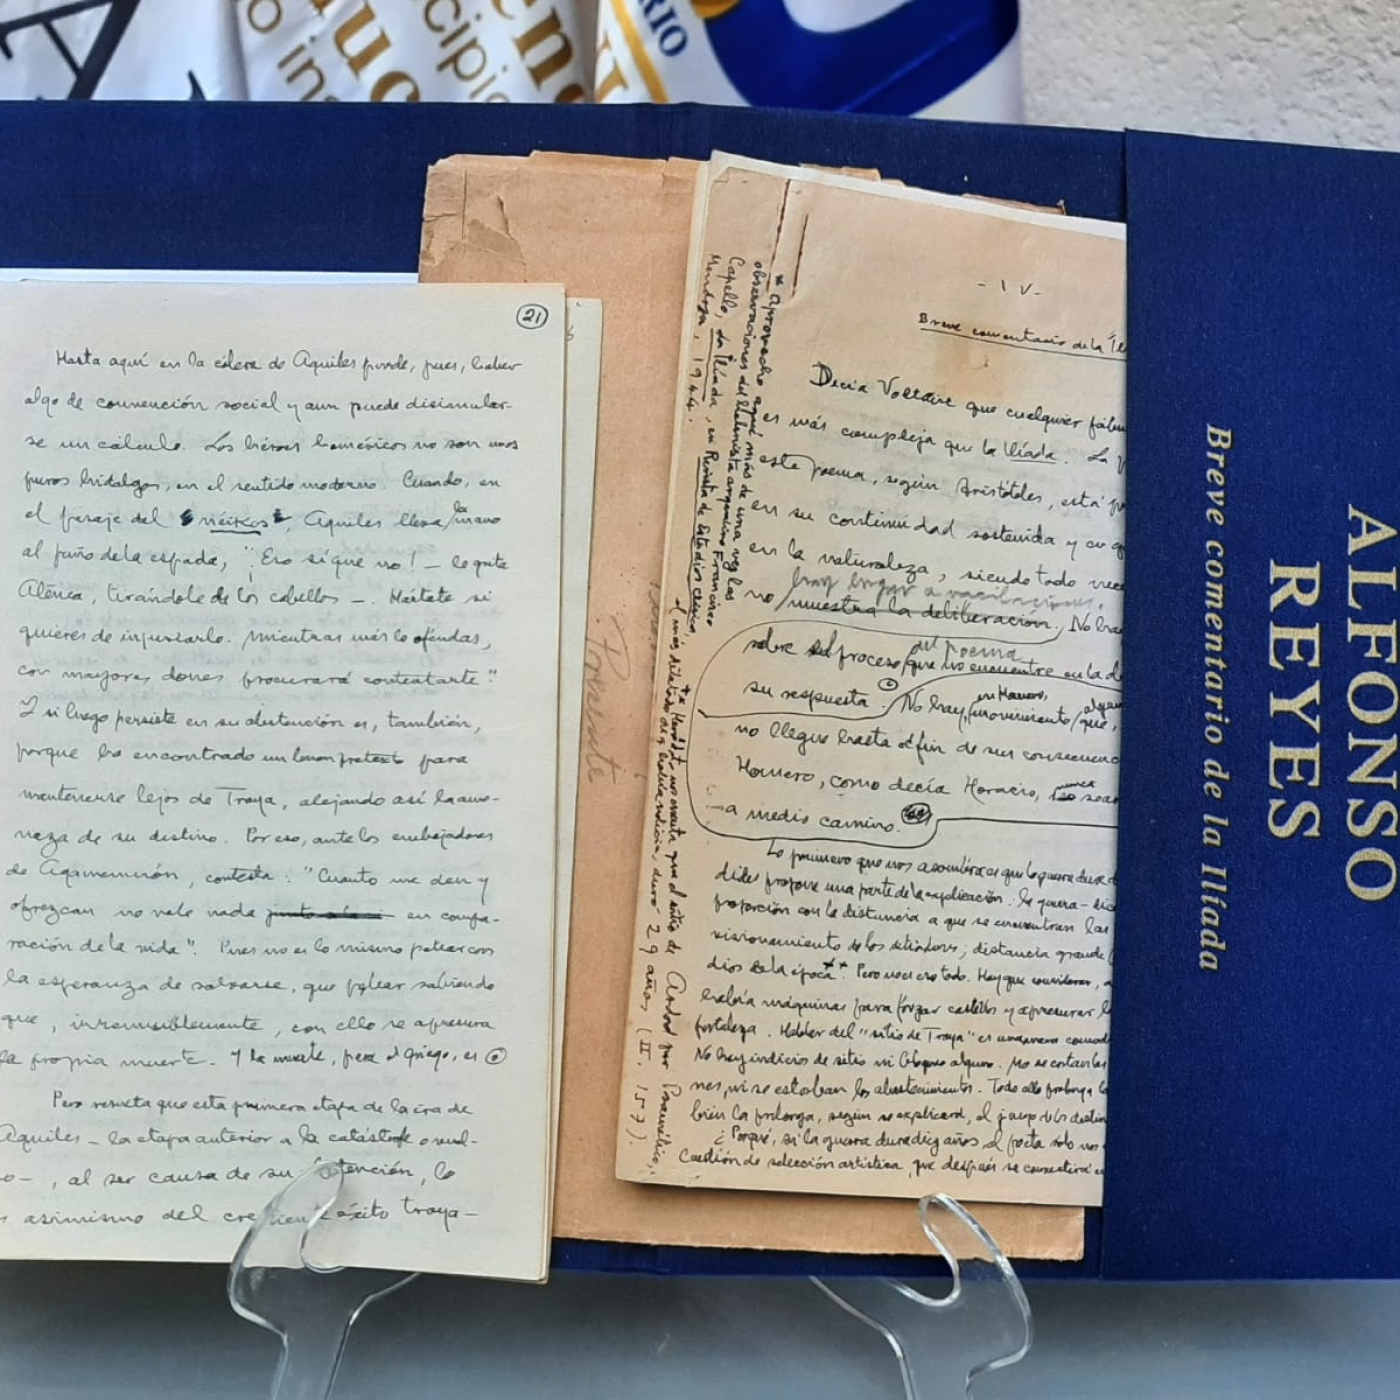 21
Hasta aquí en la cólera de Aquiles puede, pues, haber
algo de convención social y aun puede disimular-
se un cálculo. Los héroes homéricos no son unos
puros hidalgos, en el sentido moderno. Cuando, en
el pasaje del neikos, Aquiles lleva la mano
al puño de la espada, "¡Eso sí que no! — le grita
Atenea, tirándole de los cabellos —. Hártate si
quieres de injuriarlo. Mientras más lo ofendas,
con mayores dones procurará contentarte."
Y si luego persiste en su abstención es, también,
porque ha encontrado un buen pretexto para
mantenerse lejos de Troya, alejando así la ame-
naza de su destino. Por eso, ante los embajadores
de Agamemnón, contesta: "Cuanto me den y
ofrezcan no vale nada en compa-
ración de la vida". Pues no es lo mismo pelear con
la esperanza de salvarse, que pelear sabiendo
que, irremisiblemente, con ello se apresura
la propia muerte. Y la muerte, para el griego, es
Pero resulta que esta primera etapa de la ira de
Aquiles — la etapa anterior a la catástrofe
al ser causa de su abstención, lo
asimismo del creciente éxito troya-
- IV -
Breve comentario de la Il
Decía Voltaire que cualquier fábu
es más compleja que la Ilíada. La
este poema, según Aristóteles, está
en su continuidad sostenida y en q
en la naturaleza, siendo todo nece
hay lugar a vacilaciones.
no muestra la deliberación. No hay
sobre el proceso del poema que no encuentre en la
su respuesta. No hay, en Homero, movimiento que,
no llegue hasta el fin de sus consecuenc
Homero, como decía Horacio, nunca
a medio camino.
Lo primero que nos asombra es que la guerra dure d
dides propone una parte de la explicación: la guerra
proporción con la distancia a que se encuentran las
visionamiento de los sitiadores; distancia grande
dios de la época**. Pero no es eso todo. Hay que considerar,
habría máquinas para forzar castillos y apresurar
fortaleza. Hablar del "sitio de Troya" es una manera comod
No hay indicios de sitio ni bloqueo alguno. No se cortan las
nes, ni se estorban los abastecimientos. Todo ello prolonga
bién la prolonga, según se explicará, el juego de los destin
¿Por qué, si la guerra dura diez años el poeta solo nos
Cuestión de selección artística, que después se convertirá
* Aprovecho aquí más de una vez las
observaciones del helenista argentino Francisco
Capello, La Ilíada, en Revista de Estudios Clásicos,
Mendoza, 1944.
** Heródoto cuenta que el sitio de Azdod por Psamético,
el más dilatado de que había noticia, duró 29 años (II, 157).
ALFONSO
REYES
Breve comentario de la Ilíada